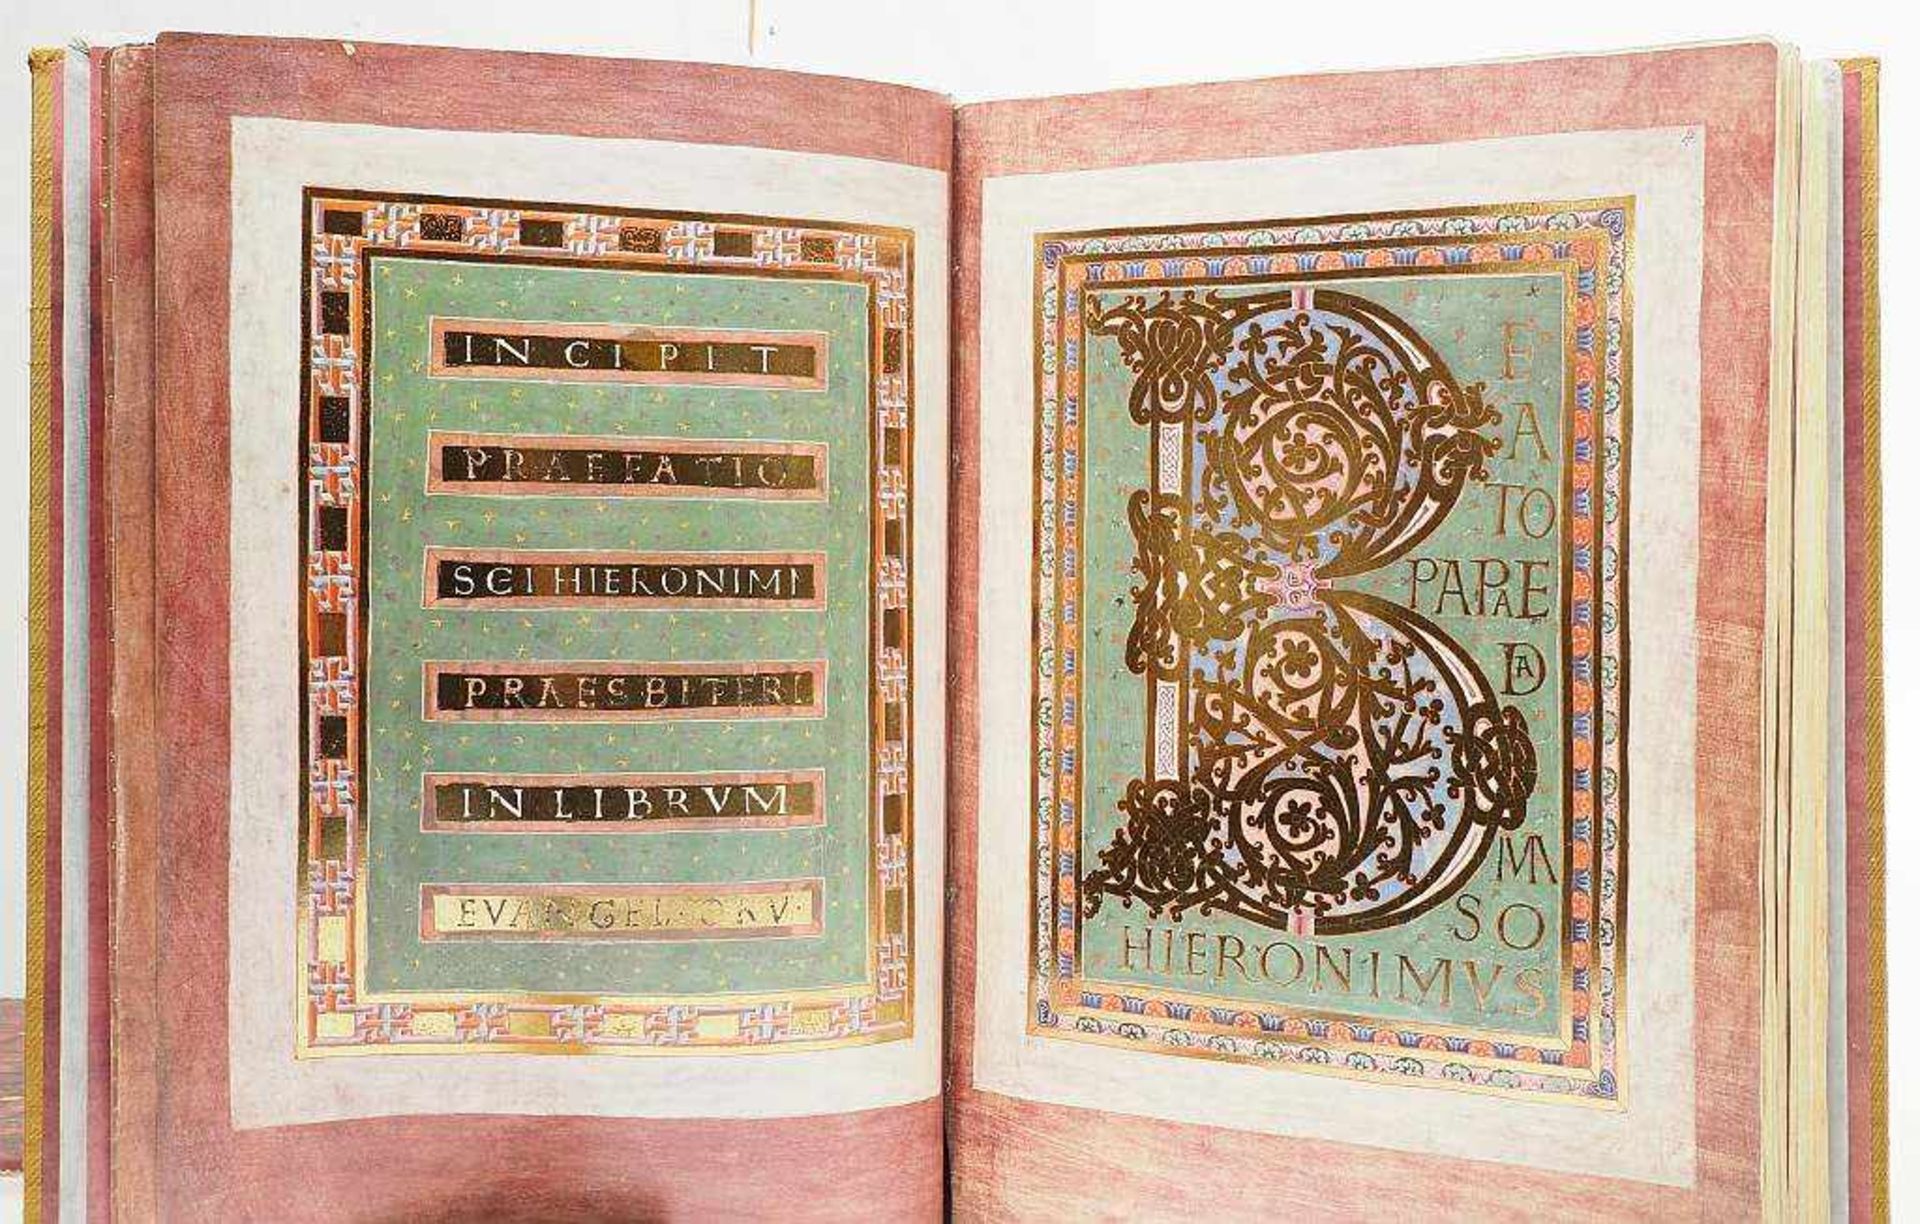 INCIPIT
PRAEFATIO
SCI HIERONIMI
PRAESBITERI
IN LIBRVM
EVANGELIORV·
B
E
A
TO
PAPAE
DA
MA
SO
HIERONIMVS